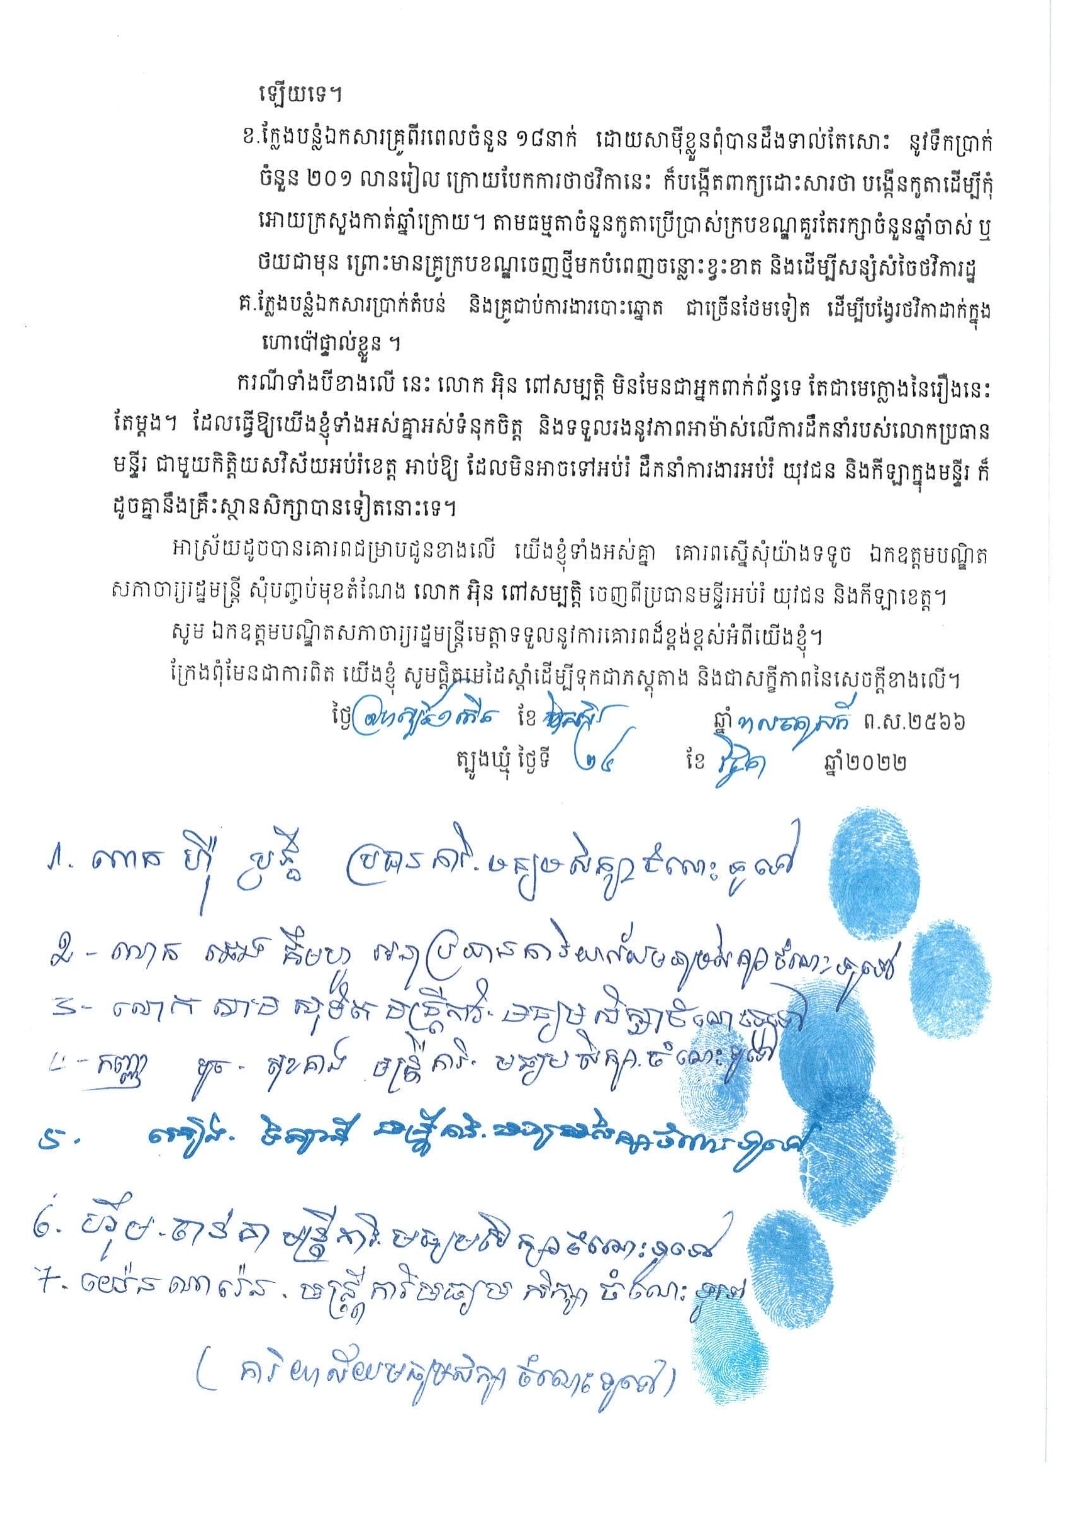 ឡើយទេ។
ខ.ក្លែងបន្លំឯកសារគ្រូពីរពេលចំនួន ១៨នាក់ ដោយសាម៉ីខ្លួនពុំបានដឹងទាល់តែសោះ នូវទឹកប្រាក់
ចំនួន ២០១ លានរៀល ក្រោយបែកការថាថវិកានេះ ក៏បង្កើតពាក្យដោះសារថា បង្កើនកូតាដើម្បីកុំ
អោយក្រសួងកាត់ឆ្នាំក្រោយ។ តាមធម្មតាចំនួនកូតាប្រើប្រាស់ក្របខណ្ឌគួរតែរក្សាចំនួនឆ្នាំចាស់ ឬ
ថយជាមុន ព្រោះមានគ្រូក្របខណ្ឌចេញថ្មីមកបំពេញចន្លោះខ្វះខាត និងដើម្បីសន្សំសំចៃថវិការដ្ឋ
គ.ក្លែងបន្លំឯកសារប្រាក់តំបន់ និងគ្រូជាប់ការងារបោះឆ្នោត ជាច្រើនថែមទៀត ដើម្បីបង្វែរថវិកាដាក់ក្នុង
ហោប៉ៅផ្ទាល់ខ្លួន ។
ករណីទាំងបីខាងលើ នេះ លោក អ៊ិន ពៅសម្បត្តិ មិនមែនជាអ្នកពាក់ព័ន្ធទេ តែជាមេក្លោងនៃរឿងនេះ
តែម្តង។ ដែលធ្វើឱ្យយើងខ្ញុំទាំងអស់គ្នាអស់ទំនុកចិត្ត និងទទួលរងនូវភាពអាម៉ាស់លើការដឹកនាំរបស់លោកប្រធាន
មន្ទីរ ជាមួយកិត្តិយសវិស័យអប់រំខេត្ត អាប់ឱ្យ ដែលមិនអាចទៅអប់រំ ដឹកនាំការងារអប់រំ យុវជន និងកីឡាក្នុងមន្ទីរ ក៏
ដូចគ្នានឹងគ្រឹះស្ថានសិក្សាបានទៀតនោះទេ។
អាស្រ័យដូចបានគោរពជម្រាបជូនខាងលើ យើងខ្ញុំទាំងអស់គ្នា គោរពស្នើសុំយ៉ាងទទូច ឯកឧត្តមបណ្ឌិត
សភាចារ្យរដ្ឋមន្ត្រី សុំបញ្ចប់មុខតំណែង លោក អ៊ិន ពៅសម្បត្តិ ចេញពីប្រធានមន្ទីរអប់រំ យុវជន និងកីឡាខេត្ត។
សូម ឯកឧត្តមបណ្ឌិតសភាចារ្យរដ្ឋមន្ត្រីមេត្តាទទួលនូវការគោរពដ៏ខ្ពង់ខ្ពស់អំពីយើងខ្ញុំ។
ក្រែងពុំមែនជាការពិត យើងខ្ញុំ សូមផ្តិតមេដៃស្តាំដើម្បីទុកជាភស្តុតាង និងជាសក្ខីភាពនៃសេចក្តីខាងលើ។
ថ្ងៃ ខែ ឆ្នាំ ព.ស.២៥៦៦
ត្បូងឃ្មុំ ថ្ងៃទី ២៤ ខែ ឆ្នាំ២០២២
1. លោក ប្រធានការិ. មធ្យមសិក្សាចំណេះទូទៅ
2 - លោក អនុប្រធានការិយាល័យមធ្យមសិក្សាចំណេះទូទៅ
3 - លោក មន្ត្រីការិ. មធ្យមសិក្សាចំណេះទូទៅ
4 - កញ្ញា មន្ត្រីការិ. មធ្យមសិក្សាចំណេះទូទៅ
5. មន្ត្រីការិ. មធ្យមសិក្សាចំណេះទូទៅ
6. មន្ត្រីការិ. មធ្យមសិក្សាចំណេះទូទៅ
7. មន្ត្រីការិ មធ្យមសិក្សាចំណេះទូទៅ
(ការិយាល័យមធ្យមសិក្សាចំណេះទូទៅ)